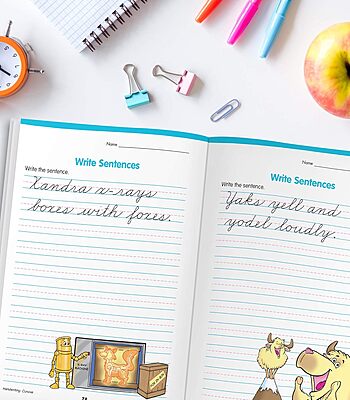 Name
Write Sentences
Write the sentence.
Xandra x-rays
boxes with foxes.
Handwriting: Cursive
Name
Write Sentences
Write the sentence.
Yaks yell and
yodel loudly.